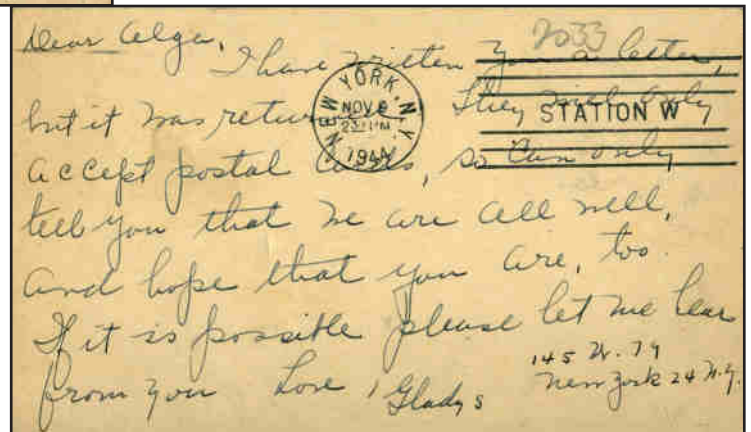 2033
Dear Olga,
I have written you a letter,
but it was retur They will only
accept postal cards, so can only
tell you that we are all well,
and hope that you are, too.
If it is possible please let me hear
from you Love, Gladys
145 W. 79
New York 24 N.Y.
NEW YORK, N.Y.
NOV 9
1944
STATION W